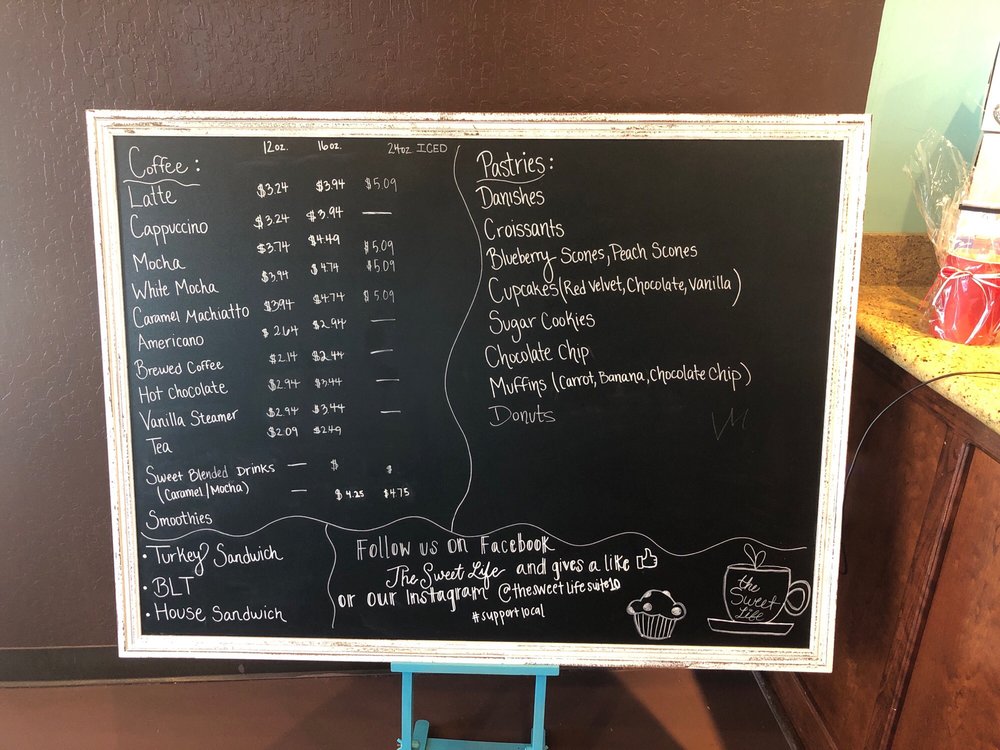 Coffee: 12oz. 16oz. 24oz ICED
Latte $3.24 $3.94 $5.09
Cappuccino $3.24 $3.94 —
Mocha $3.74 $4.49 $5.09
White Mocha $3.94 $4.74 $5.09
Caramel Machiatto $3.94 $4.74 $5.09
Americano $2.64 $2.94 —
Brewed Coffee $2.14 $2.44 —
Hot Chocolate $2.94 $3.44 —
Vanilla Steamer $2.94 $3.44 —
Tea $2.09 $2.49
Sweet Blended Drinks — $ $
(Caramel/Mocha)
Smoothies — $4.25 $4.75
Pastries:
Danishes
Croissants
Blueberry Scones, Peach Scones
Cupcakes (Red Velvet, Chocolate, Vanilla)
Sugar Cookies
Chocolate Chip
Muffins (Carrot, Banana, Chocolate Chip)
Donuts
• Turkey Sandwich
• BLT
• House Sandwich
Follow us on Facebook
The Sweet Life and gives a like
or our Instagram @thesweetlifesuite10
#supportlocal
the
Sweet
Life